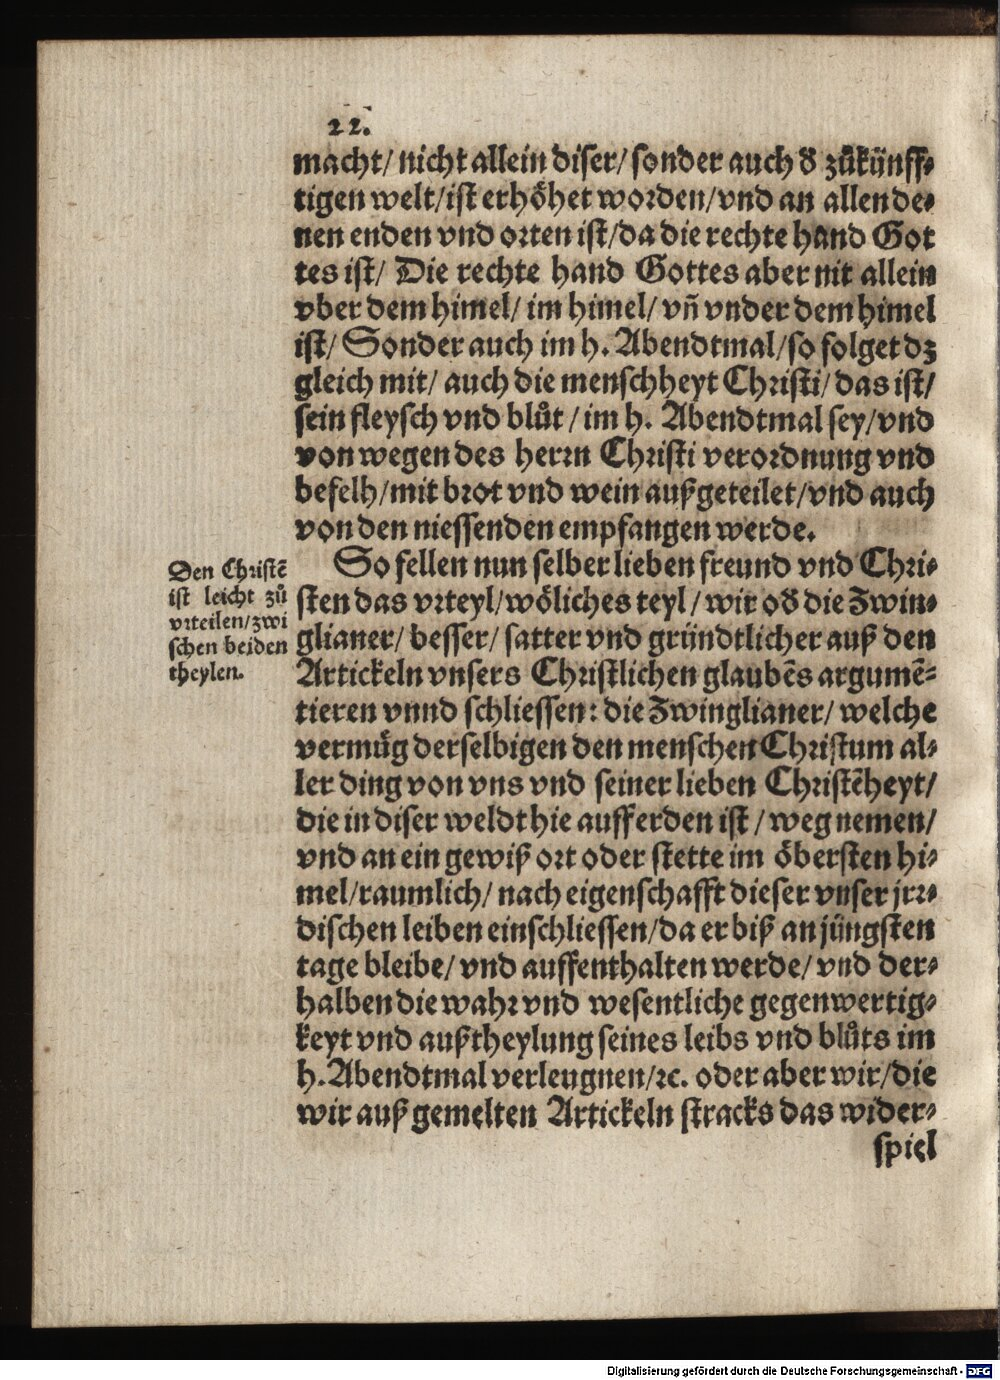 22.
macht/ nicht allein diser/ sonder auch ď zůkünff⸗
tigen welt/ist erhöhet worden/vnd an allen de⸗
nen enden vnd orten ist/da die rechte hand Got
tes ist/ Die rechte hand Gottes aber nit allein
vber dem himel/ im himel/ vñ vnder dem himel
ist/ Sonder auch im h. Abendtmal/so folget dz
gleich mit/ auch die menschheyt Christi/ das ist/
sein fleysch vnd blůt / im h. Abendtmal sey/vnd
von wegen des herrn Christi verordnung vnd
befelh/mit brot vnd wein außgeteilet/vnd auch
von den niessenden empfangen werde.
Den Christē
ist leicht zů
vrteilen/zwi
schen beiden
theylen.
So fellen nun selber lieben freund vnd Chri⸗
sten das vrteyl/wöliches teyl / wir oď die Zwin⸗
glianer/ besser/ satter vnd gründtlicher auß den
Artickeln vnsers Christlichen glaubēs argumē⸗
tieren vnnd schliessen: die Zwinglianer/ welche
vermüg derselbigen den menschen Christum al⸗
ler ding von vns vnd seiner lieben Christēheyt/
die in diser weldt hie auff erden ist / weg nemen/
vnd an ein gewiß ort oder stette im öbersten hi⸗
mel/raumlich/ nach eigenschafft dieser vnser jrr⸗
dischen leiben einschliessen/da er biß an jüngsten
tage bleibe/ vnd auffenthalten werde/ vnd der⸗
halben die wahr vnd wesentliche gegenwertig⸗
keyt vnd außtheylung seines leibs vnd blůts im
h. Abendtmal verleugnen/ꝛc. oder aber wir/die
wir auß gemelten Artickeln stracks das wider⸗
spiel
Digitalisierung gefördert durch die Deutsche Forschungsgemeinschaft - DFG